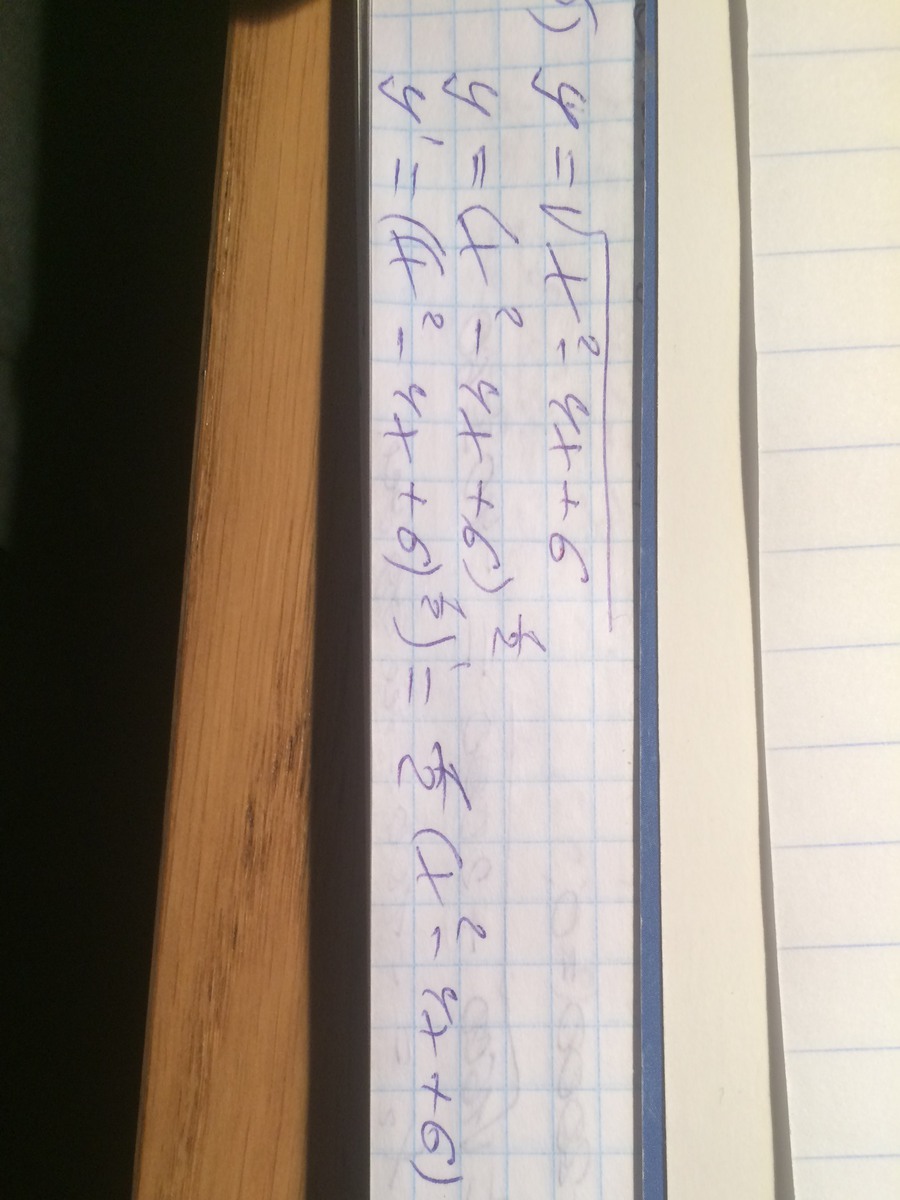 б) y = √x² - 4x + 6
y = (x² - 4x + 6)^½
y' = ((x² - 4x + 6)^½)' = ½ (x² - 4x + 6)